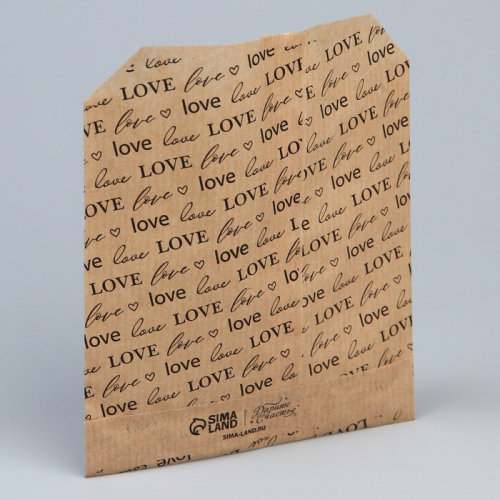 love
LOVE love ♡ love
love LOVE love ♡
love love LOVE love ♡ love
VE love ♡ love love LOVE
love LOVE love ♡ love
LOVE love ♡ love love LO
love love LOVE love
LOVE love ♡ love love
love love LOVE love ♡ lo
love ♡ love love LOVE
love LOVE love ♡ love
LOVE love ♡ love love
SIMA LAND | Дарите Счастье
SIMA-LAND.RU